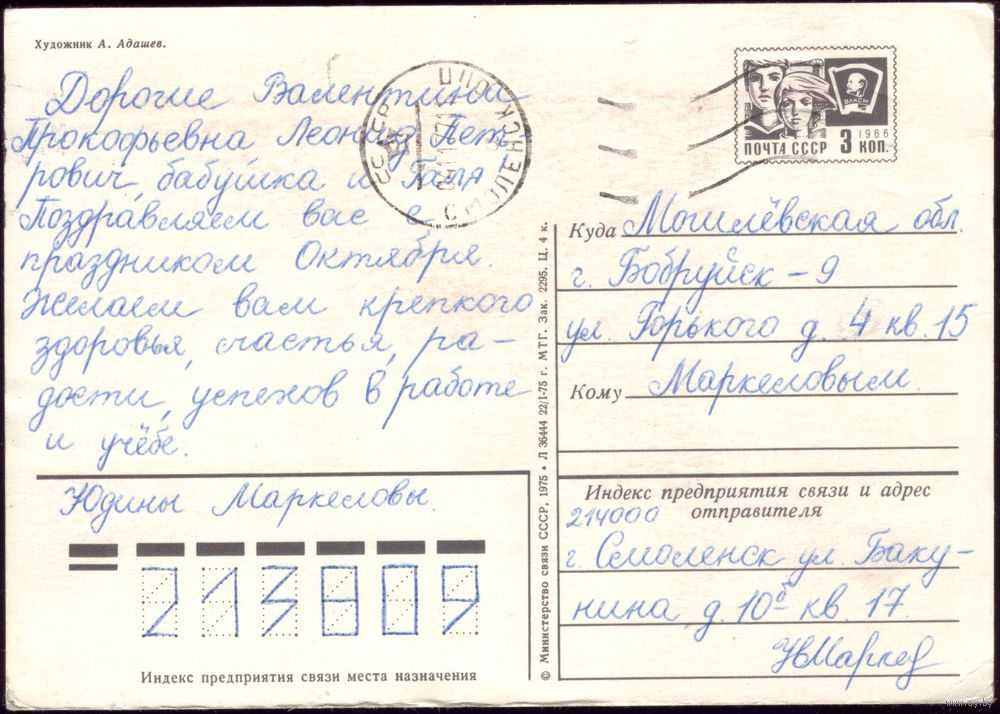 Художник А. Адашев.
Дорогие Валентина
Прокофьевна Леонид Пет-
рович, бабушка и Галя
Поздравляем вас с
праздником Октября.
Желаем вам крепкого
здоровья, счастья, ра-
дости, успехов в работе
и учёбе.
Юдины Маркеловы.
213809
Индекс предприятия связи места назначения
© Министерство связи СССР, 1975 • Л 36444 22/I-75 г. МТГ. Зак. 2295. Ц. 4 к.
СССР
СМОЛЕНСК
ВЛКСМ
1966
ПОЧТА СССР 3 КОП.
Куда Могилёвская обл.
г. Бобруйск - 9
ул. Горького д. 4 кв. 15
Кому Маркеловым.
Индекс предприятия связи и адрес
214000 отправителя
г. Смоленск ул. Баку-
нина д. 10б кв. 17